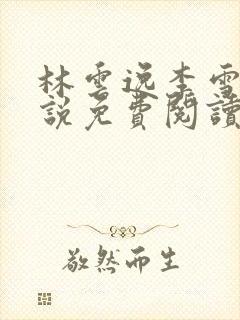 林雲逸李雪
說免費閱讀
敬然而生